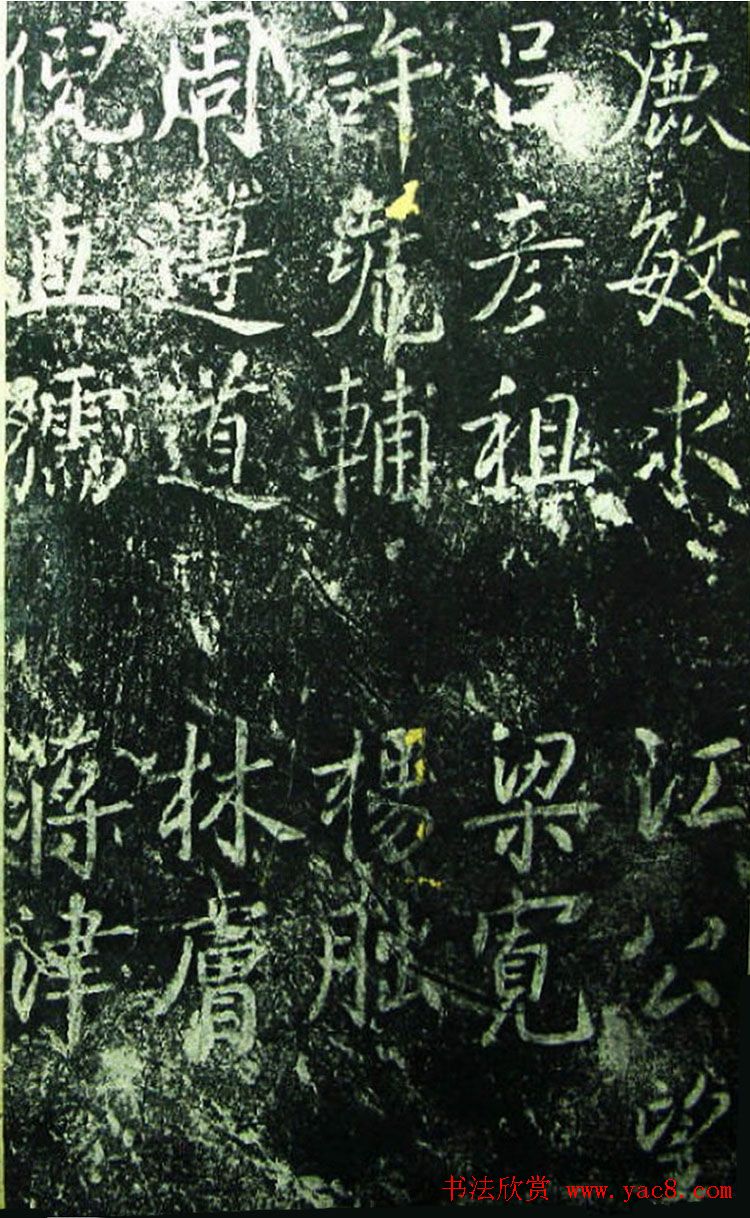 鹿敏求 江公望
呂彦祖 梁寛
許堯輔 楊朏
周遵道 林膚
倪直孺 蔣津
书法欣赏 www.yac8.com